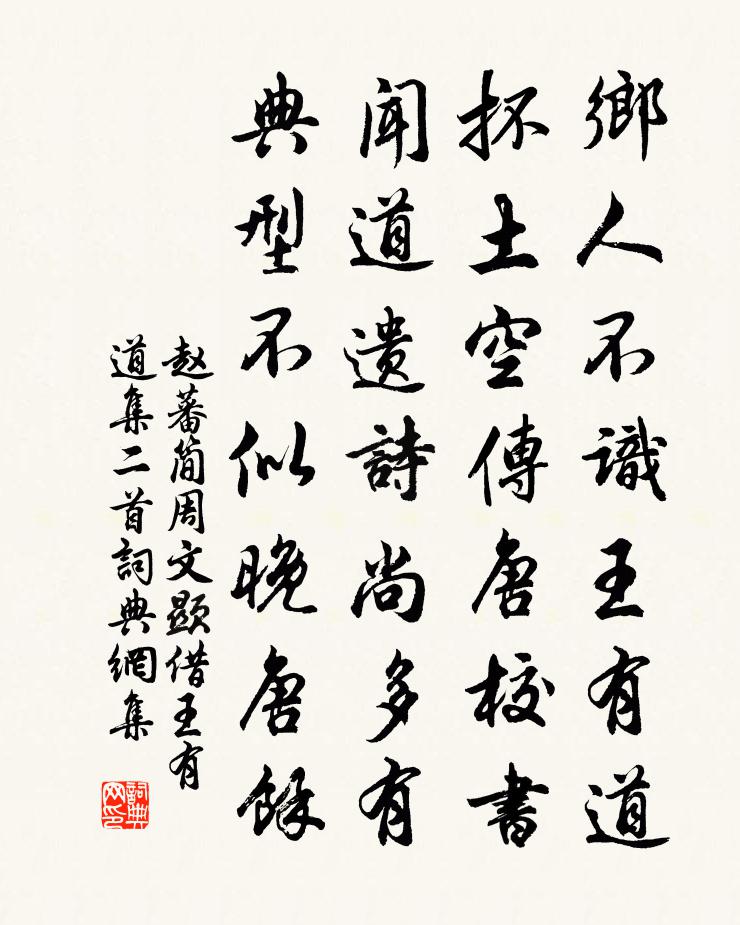 鄉人不識王有道
抔土空傳唐校書
聞道遺詩尚多有
典型不似晚唐餘
赵蕃简周文顯借王有
道集二首詞典網集
詞典网印